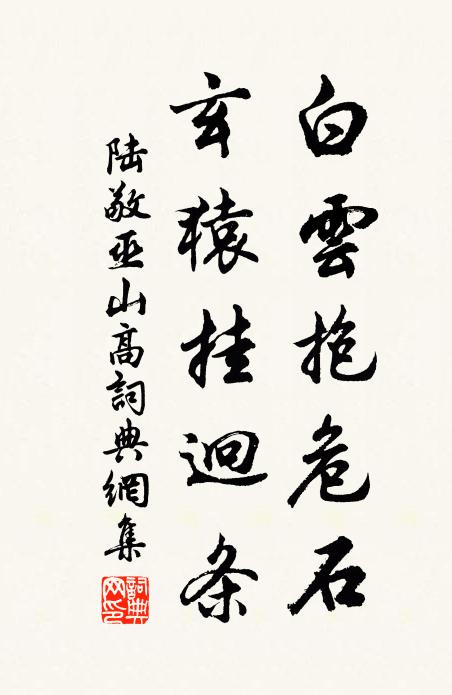 白雲抱危石
玄猿挂迴条
陆敬巫山高詞典網集
詞典網印